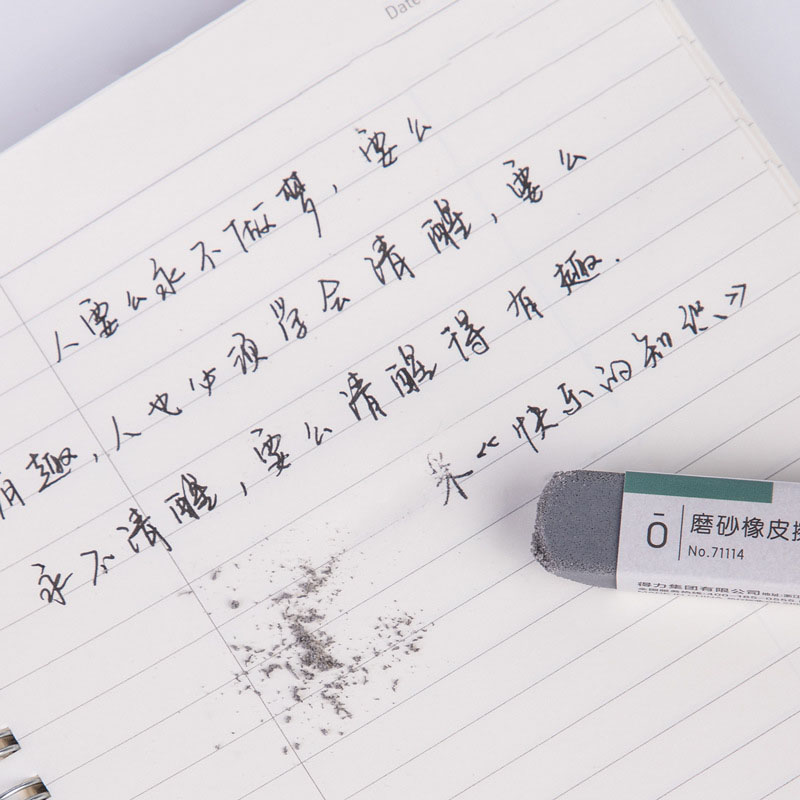 Date
人要么永不做梦，要么
有趣，人也必须学会清醒，要么
永不清醒，要么清醒得有趣.
采《快乐的知识》
Ō
磨砂橡皮擦
No.71114
得力集团有限公司